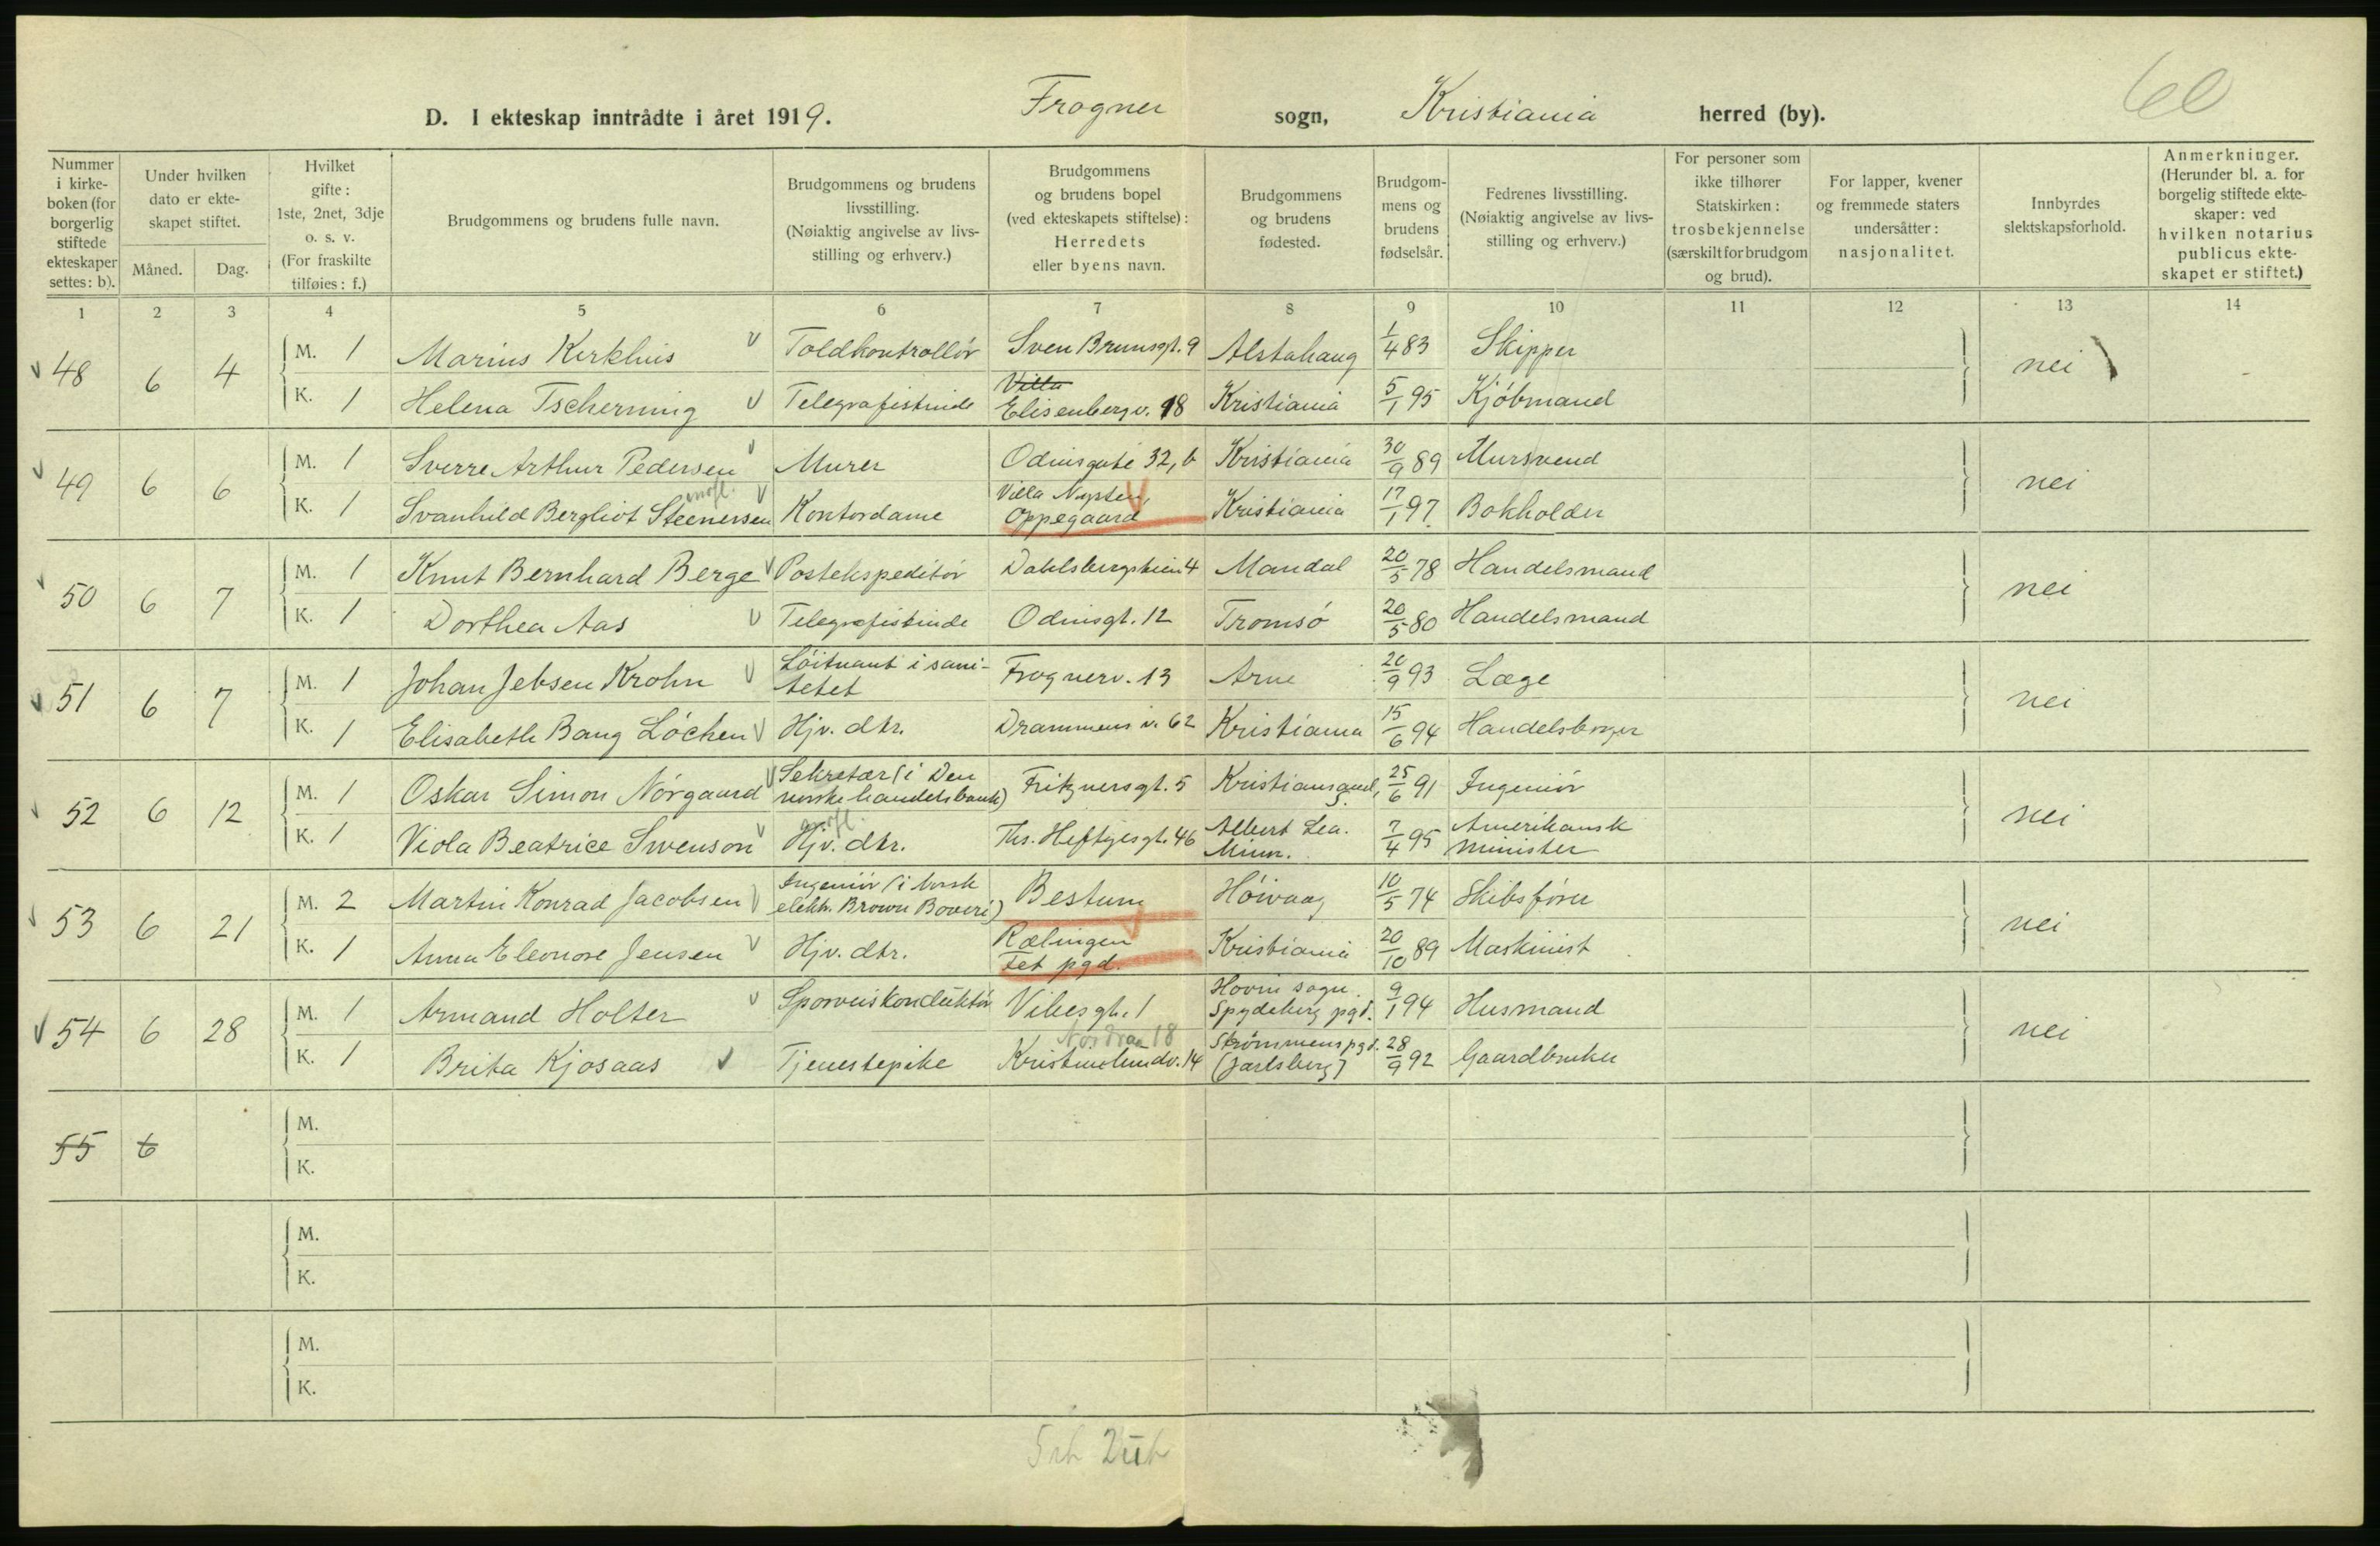 60
D. I ekteskap inntrådte i året 1919. Frogner sogn, Kristiania herred (by).
Nummer i kirke- boken (for borgerlig stiftede ekteskaper settes: b).
Under hvilken dato er ekte- skapet stiftet.
Måned. Dag.
Hvilket gifte: 1ste, 2net, 3dje o. s. v. (For fraskilte tilføies: f.)
Brudgommens og brudens fulle navn.
Brudgommens og brudens livsstilling. (Nøiaktig angivelse av livs- stilling og erhverv.)
Brudgommens og brudens bopel (ved ekteskapets stiftelse): Herredets eller byens navn.
Brudgommens og brudens fødested.
Brudgom- mens og brudens fødselsår.
Fedrenes livsstilling. (Nøiaktig angivelse av livs- stilling og erhverv.)
For personer som ikke tilhører Statskirken: trosbekjennelse (særskilt for brudgom og brud).
For lapper, kvener og fremmede staters undersåtter: nasjonalitet.
Innbyrdes slektskapsforhold.
Anmerkninger. (Herunder bl. a. for borgelig stiftede ekte- skaper: ved hvilken notarius publicus ekte- skapet er stiftet.)
1 2 3 4 5 6 7 8 9 10 11 12 13 14
48 6 4 M. 1 Marius Kirkhus Toldkontrollör Sven Brunsgt. 9 Alstahaug 1/4 83 Skipper nei
K. 1 Helena Tscherning Telegrafistinde Villa Elisenbergv. 18 Kristiania 5/1 95 Kjöbmand
49 6 6 M. 1 Sverre Arthur Pedersen Murer Odinsgate 32, b Kristiania 30/9 89 Mursvend nei
K. 1 Svanhild Bergliot Steenersen Kontordame Villa Nysten, Oppegaard Kristiania 17/1 97. Bokholder
50 6 7 M. 1 Knut Bernhard Berge Postekspeditör Dahlsbergstien 4 Mandal 20/5 78 Handelsmand nei
K. 1 Dorthea Aas Telegrafistinde Odinsgt. 12 Tromsö 20/5 80 Handelsmand
51 6 7 M. 1 Johan Jebsen Krohn Löitnant i sani- tetet Frognerv. 13 Arne 20/9 93 Læge nei
K. 1 Elisabeth Bang Löchen Hjv. dtr. Drammens v. 62 Kristiania 15/6 94 Handelsborger
52 6 12 M. 1 Oskar Simon Nörgaard Sekretær (i Den norske handelsbank) Fritznersgt. 5 Kristiansand S. 25/6 91 Ingeniör nei
K. 1 Viola Beatrice Swenson Hjv. dtr. Ths. Heftyesgt. 46 Albert Lea. Minn. 7/4 95 Amerikansk minister
53 6 21 M. 2 Martin Konrad Jacobsen Ingeniör (i Norsk elektr. Brown Boveri) Bestum Höivaag 10/5 74 Skibsförer nei
K. 1 Anna Eleonore Jensen Hjv. dtr. Rælingen Fet pgd. Kristiania 20/10 89 Maskinist
54 6 28 M. 1 Armand Holter Sporveiskonduktör Vibesgt. 1 Hovin sogn. Spydeberg pgd. 9/1 94 Husmand nei
K. 1 Brita Kjosaas Tjenestepike Nordraa 18 Kristinelundv. 14 Strömmens pgd. (Jarlsberg) 28/9 92 Gaardbruker
55 6 M.
K.
M.
K.
M.
K.